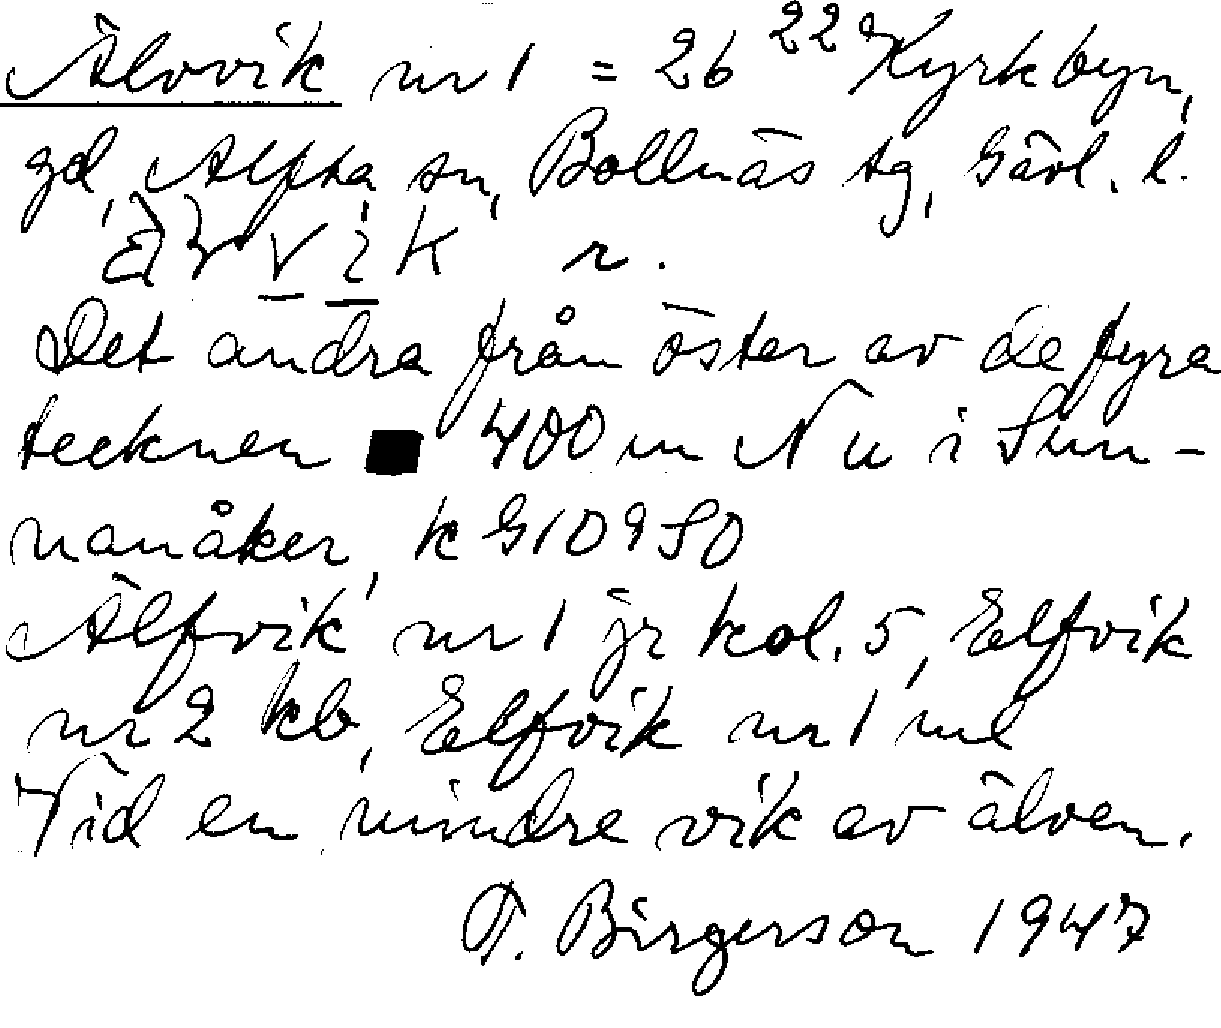 Älvvik nr 1 = 26²² Kyrkbyn,
gd, Alfta sn, Bollnäs tg, Gävl. l.
r.
Det andra från öster av de fyra
tecknen ■ 400 m N u i Sun-
nanåker, k G10950
Älfvik nr 1 jr kol. 5, Elfvik
nr 2 kb, Elfvik nr 1 ml
Vid en mindre vik av älven.
T. Birgerson 1947